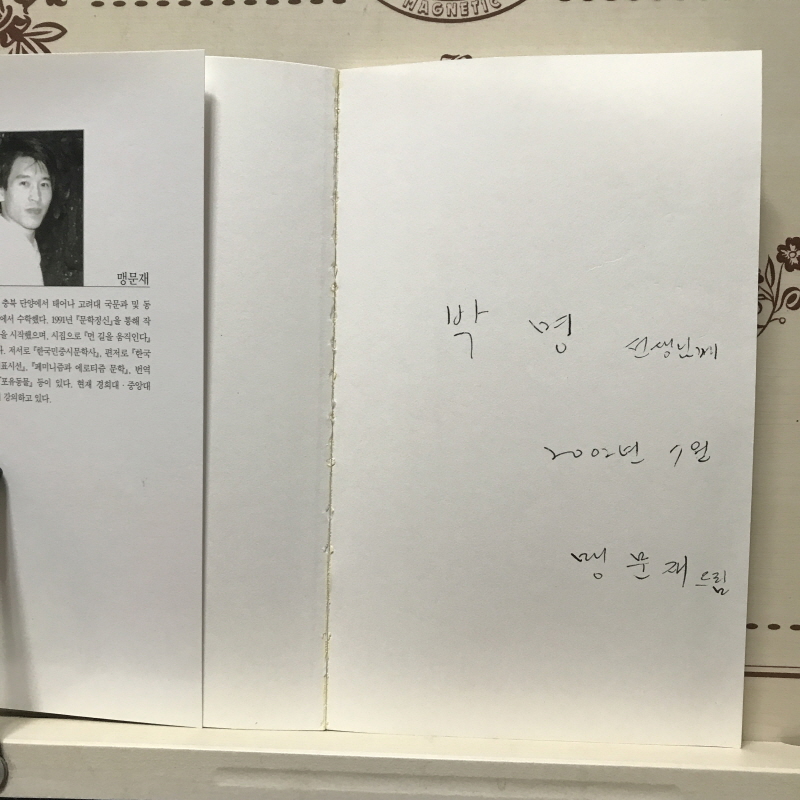 MAGNETIC
맹문재
충북 단양에서 태어나 고려대 국문과 및 동
에서 수학했다. 1991년 『문학정신』을 통해 작
을 시작했으며, 시집으로 『먼 길을 움직인다』
다. 저서로 『한국민중시문학사』, 편저로 『한국
표시선』, 『페미니즘과 에로티즘 문학』, 번역
『포유동물』 등이 있다. 현재 경희대·중앙대
강의하고 있다.
박 명 선생님께
2002년 1월
맹문재 드림